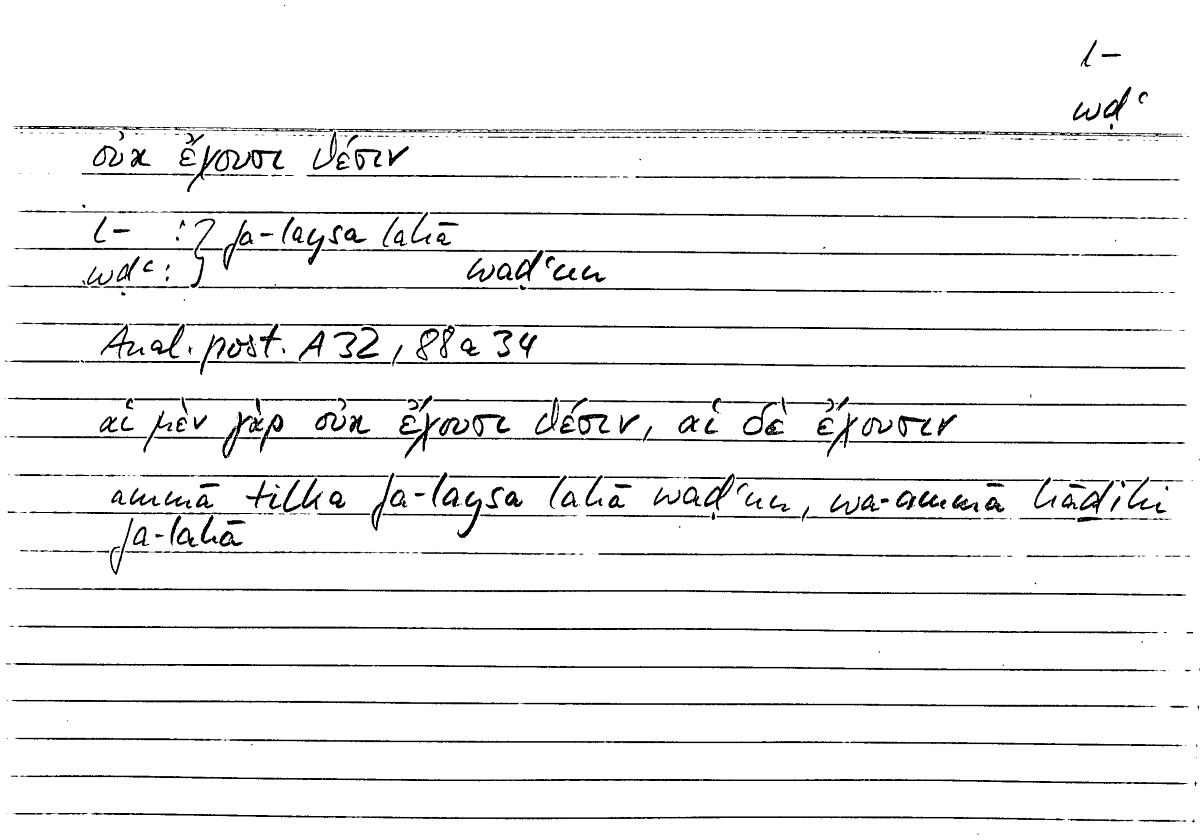 l–
wḍʿ
οὐκ ἔχουσι θέσιν
l– : } fa-laysa lahā
wḍʿ : } waḍʿun
Anal. post. A 32, 88 a 34
αἱ μὲν γὰρ οὐκ ἔχουσι θέσιν, αἱ δὲ ἔχουσιν
ammā tilka fa-laysa lahā waḍʿun, wa-ammā hāḏihi
fa-lahā